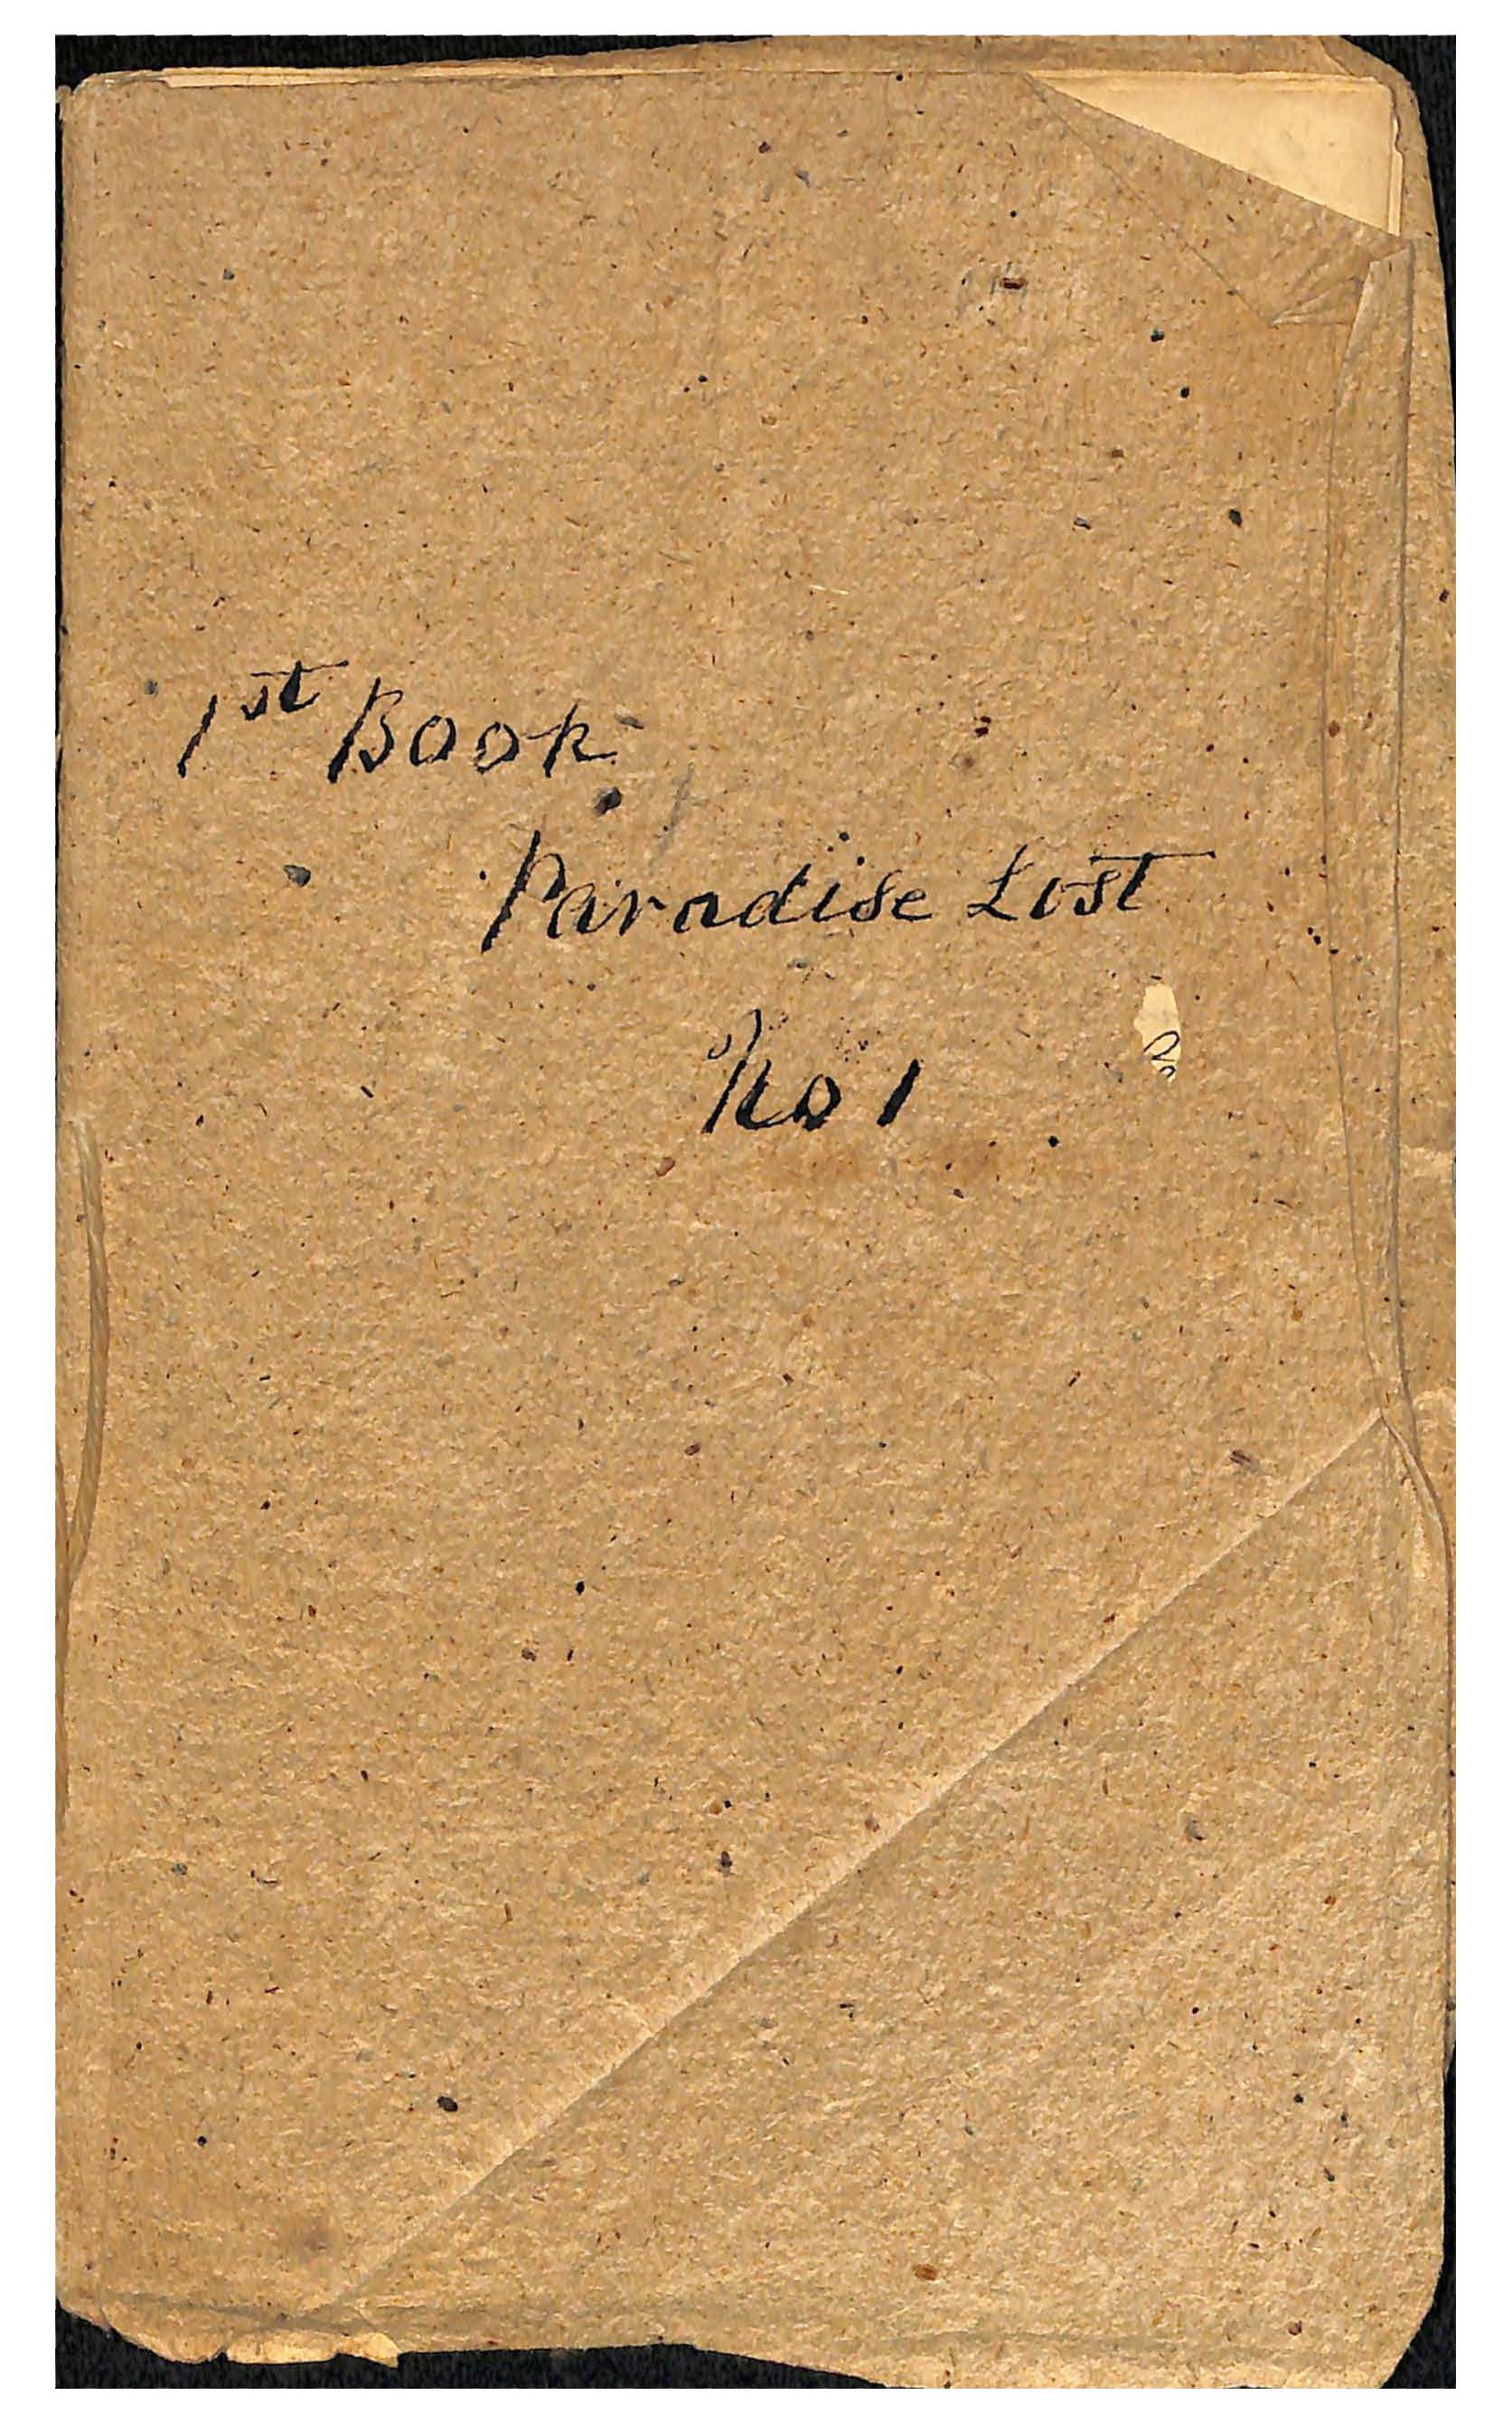 1st Book
Paradise Lost
No 1